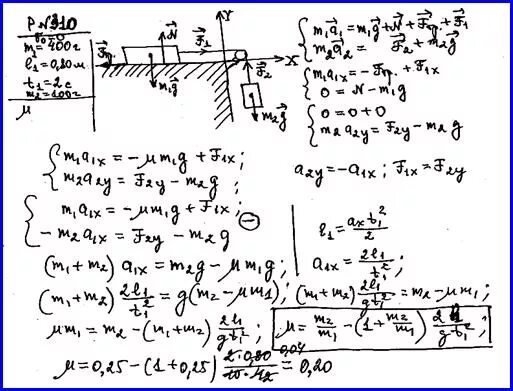 P №310
v₀=0
m₁=400г
l₁=0,80м
t₁=2c
m₂=100г
μ
Y
N⃗
F⃗₁
F⃗тр.
X
m₁g⃗
F⃗₂
m₂g⃗
m₁a⃗₁=m₁g⃗+N⃗+F⃗тр.+F⃗₁
m₂a⃗₂= F⃗₂+m₂g⃗
m₁a₁ₓ=-Fтр.+F₁ₓ
0=N-m₁g
0=0+0
m₂a₂y=F₂y-m₂g
m₁a₁ₓ=-μm₁g+F₁ₓ;
m₂a₂y=F₂y-m₂g;
a₂y=-a₁ₓ; F₁ₓ=F₂y
m₁a₁ₓ=-μm₁g+F₁ₓ;
-m₂a₁ₓ=F₂y-m₂g
l₁=aₓt₁²/2
(m₁+m₂) a₁ₓ=m₂g-μm₁g;
a₁ₓ=2l₁/t₁²;
(m₁+m₂) 2l₁/t₁²=g(m₂-μm₁); (m₁+m₂) 2l₁/gt₁²=m₂-μm₁;
μm₁=m₂-(m₁+m₂) 2l₁/gt₁²;
μ=m₂/m₁-(1+m₂/m₁) 2l₁/gt₁²;
μ=0,25-(1+0,25) 2·0,80/10·42 0,04=0,20